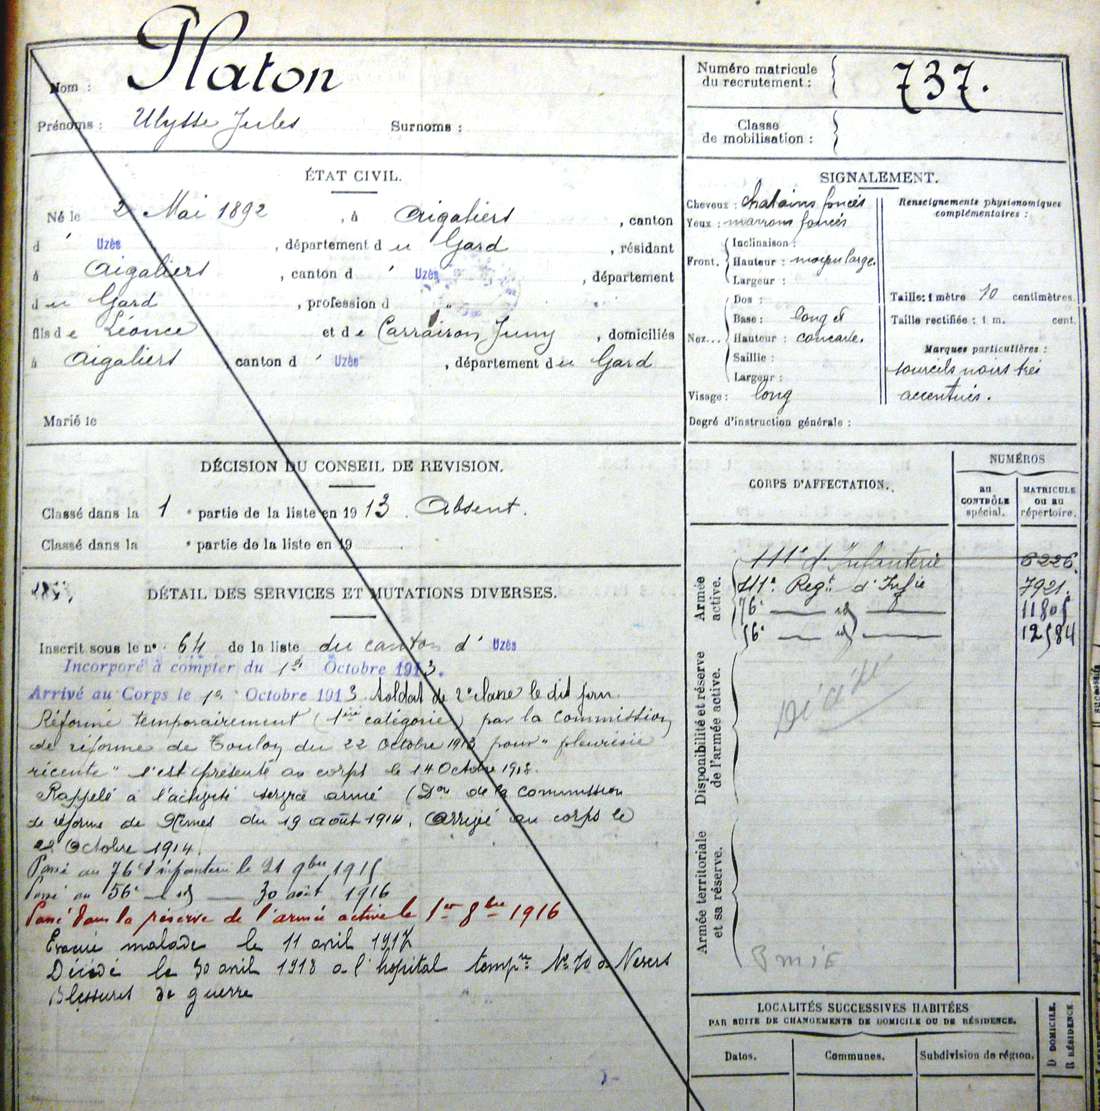 Nom : Platon
Prénoms : Ulysse Jules Surnoms :
Numéro matricule du recrutement : 737.
Classe de mobilisation :
ÉTAT CIVIL.
Né le 2 Mai 1892, à Aigaliers, canton
d' Uzès, département du Gard, résidant
à Aigaliers, canton d' Uzès, département
du Gard, profession d
fils de Léonce et de Carrairon Juny, domiciliés
à Aigaliers, canton d' Uzès, département du Gard
Marié le
SIGNALEMENT.
Cheveux : chatains foncés
Yeux : marrons foncés
Front. Inclinaison :
Hauteur : moyen large.
Largeur :
Nez... Dos :
Base : long et
Hauteur : concave.
Saillie :
Largeur :
Visage : long
Renseignements physionomiques
complémentaires :
Taille : 1 mètre 70 centimètres.
Taille rectifiée : 1 m. cent.
Marques particulières :
sourcils noirs très
accentués.
Degré d'instruction générale :
DÉCISION DU CONSEIL DE REVISION.
Classé dans la 1e partie de la liste en 1913. Absent.
Classé dans la e partie de la liste en 19
DÉTAIL DES SERVICES ET MUTATIONS DIVERSES.
Inscrit sous le no 64 de la liste du canton d' Uzès
Incorporé à compter du 1er Octobre 1913.
Arrivé au Corps le 1er Octobre 1913 soldat de 2e classe le dit jour.
Réformé temporairement (1ère catégorie) par la Commission
de réforme de Toulon du 22 octobre 1913 pour "pleurésie
récente" s'est présenté au corps le 14 Octobre 1913.
Rappelé à l'activité service armé (Don de la Commission
de réforme de Nîmes du 19 août 1914. Arrivé au corps le
22 Octobre 1914.
Passé au 76e d'infanterie le 21 9bre 1915
Passé au 56e — id — 30 août 1916
Passé dans la réserve de l'armée active le 1er 8bre 1916
Evacué malade le 11 avril 1917
Décédé le 30 avril 1918 à l'hopital tempre No 70 à Nevers
Blessures de guerre
CORPS D'AFFECTATION.
NUMÉROS
au CONTRÔLE spécial.
MATRICULE ou au répertoire.
Armée active.
111e d'Infanterie 6226.
141e Regt d'Infie 7921.
76e — id — 11805
56e — id — 12584
Disponibilité et réserve de l'armée active.
Décédé
Armée territoriale et sa réserve.
LOCALITÉS SUCCESSIVES HABITÉES
PAR SUITE DE CHANGEMENTS DE DOMICILE OU DE RÉSIDENCE.
Dates. Communes. Subdivision de région. D DOMICILE. R RÉSIDENCE